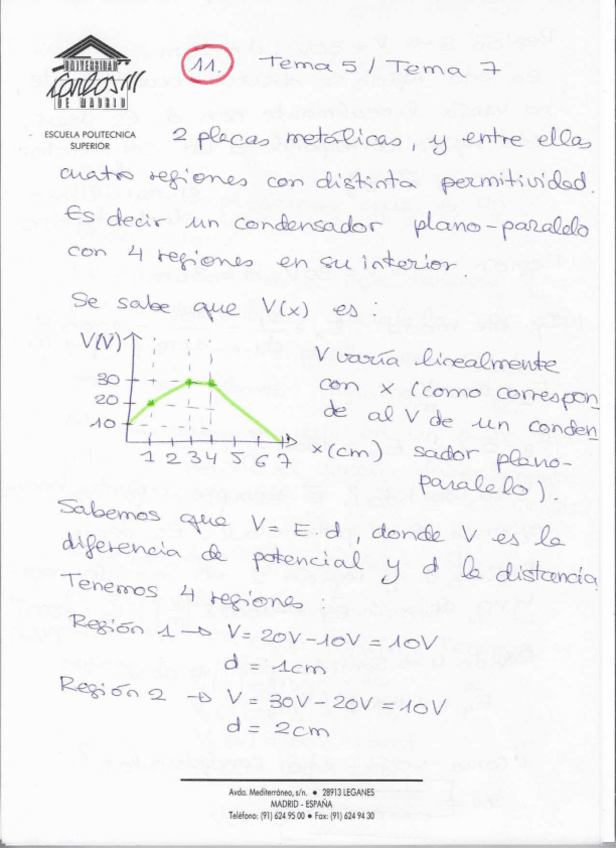 UNIVERSIDAD
Carlos III
DE MADRID
ESCUELA POLITECNICA
SUPERIOR
11. Tema 5 / Tema 7
2 placas metálicas, y entre ellas
cuatro regiones con distinta permitividad.
Es decir un condensador plano-paralelo
con 4 regiones en su interior.
Se sabe que V(x) es:
V(V)
30
20
10
1 2 3 4 5 6 7
x(cm)
V varía linealmente
con x (como correspon-
de al V de un conden-
sador plano-
paralelo).
Sabemos que V = E d, donde V es la
diferencia de potencial y d la distancia
Tenemos 4 regiones
Región 1 → V = 20V - 10V = 10V
d = 1cm
Región 2 → V = 30V - 20V = 10V
d = 2cm
Avda. Mediterráneo, s/n. • 28913 LEGANES
MADRID - ESPAÑA
Teléfono: (91) 624 95 00 • Fax: (91) 624 94 30